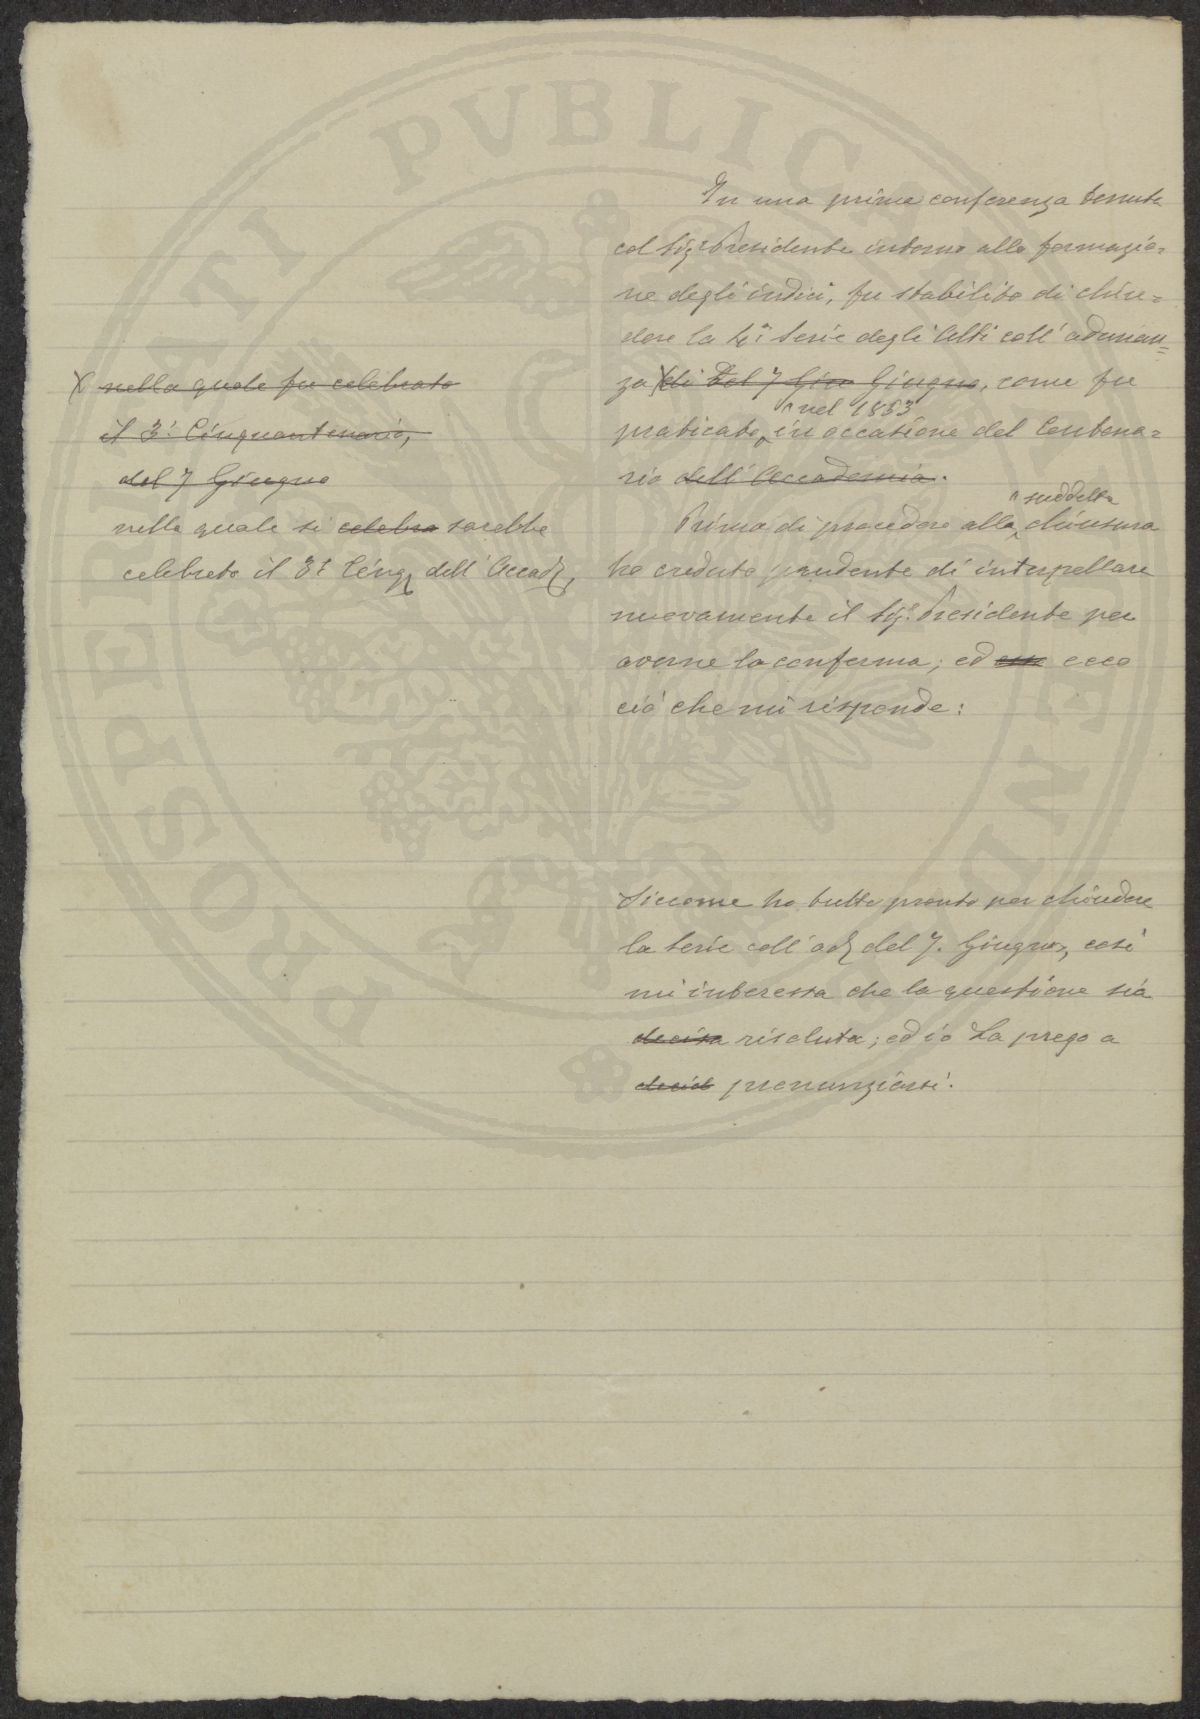 In una prima conferenza tenuta
col Sig.r Presidente intorno alla formazio=
ne degli indici, fu stabilito di chiu=
dere la 4.a Serie degli Atti coll'adunan=
za X di del 7 Giu Giugno, come fu
^ nel 1853
praticato in occasione del Centena=
rio dell'Accademia.
^ suddetta
Prima di procedere alla chiusura
ho creduto prudente di interpellare
nuovamente il Sig.r Presidente per
averne la conferma; ed ecco
ciò che mi risponde:
X nella quale fu celebrato
il 3.° Cinquantenario,
del 7 Giugno
nella quale si celebra sarebbe
celebrato il 3.° Cinq dell'Accad,
Siccome ho tutto pronto per chiudere
la Serie coll'ad del 7. Giugno, così
mi interessa che la questione sia
decisa risoluta; ed io La prego a
decid pronunziarsi.
PROSPERITATI PVBLICAE